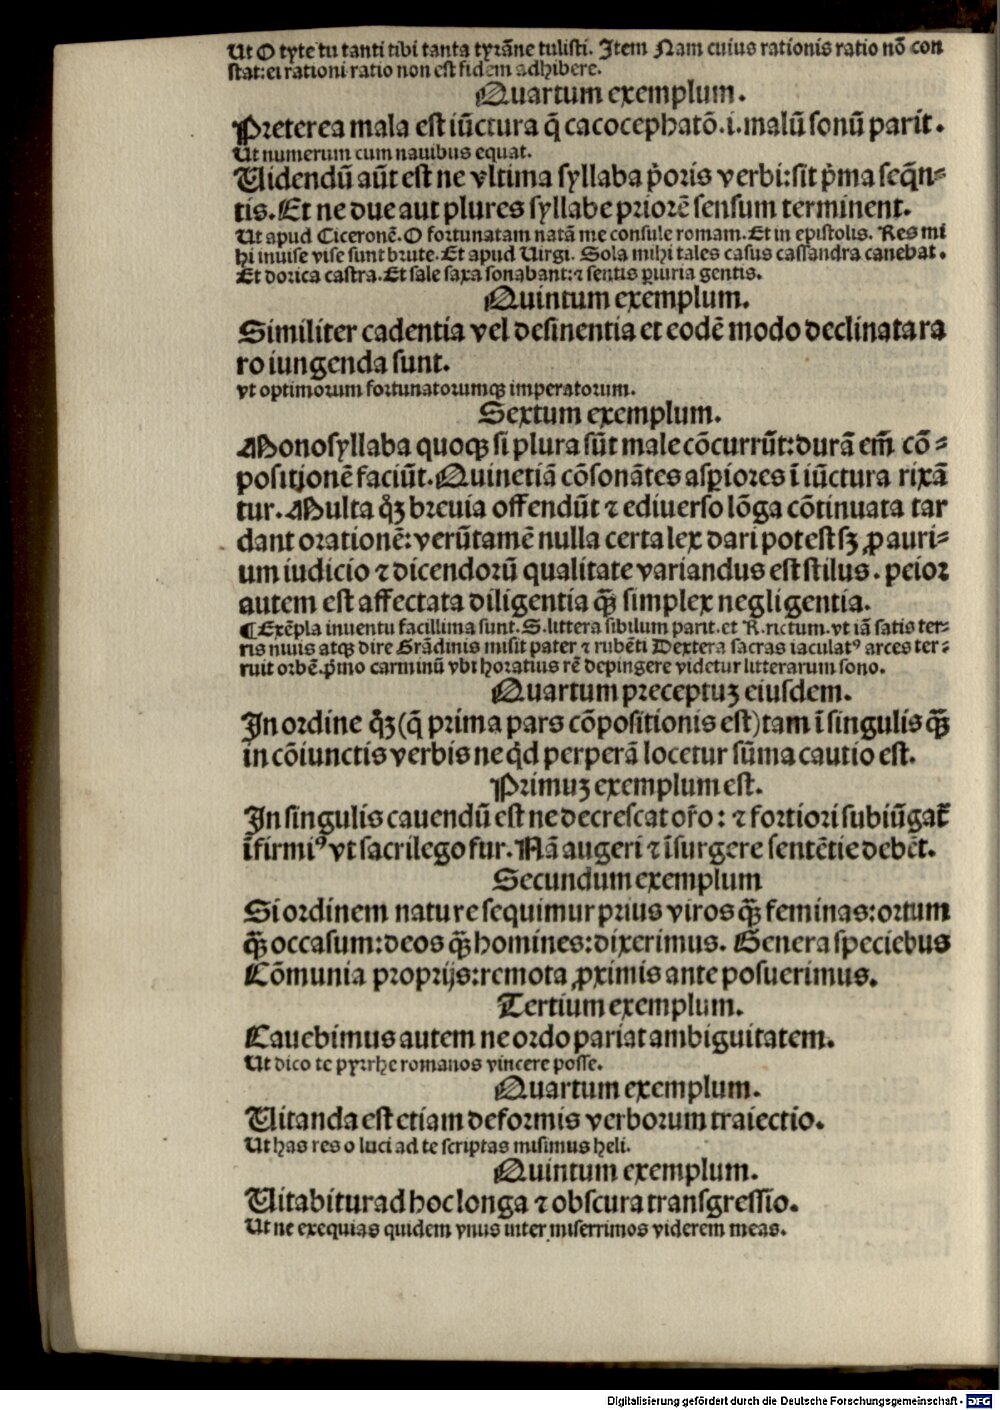 Ut O tyte tu tanti tibi tanta tyrãne tulisti. Item Nam cuius rationis ratio nõ con
stat: ei rationi ratio non est fidem adhibere.
Quartum exemplum.
Preterea mala est iũctura q̃ cacocephatõ .i. malũ sonũ parit.
Ut numerum cum nauibus equat.
Uidendũ aũt est ne vltima syllaba p̃oris verbi: sit p̃ma seq̃n⸗
tis. Et ne due aut plures syllabe priorẽ sensum terminent.
Ut apud Ciceronẽ. O fortunatam natã me consule romam. Et in epistolis. Res mi
hi inuise vise sunt brute. Et apud Uirgi. Sola mihi tales casus cassandra canebat.
Et dorica castra. Et sale saxa sonabant: ⁊ sentis ꝑiuria gentis.
Quintum exemplum.
Similiter cadentia vel desinentia et eodẽ modo declinata ra
ro iungenda sunt.
vt optimorum fortunatorumqꝫ imperatorum.
Sextum exemplum.
Monosyllaba quoqꝫ si plura sũt male cõcurrũt: durã em̃ cõ⸗
positionẽ faciũt. Quinetiã cõsonãtes asꝑiores ĩ iũctura rixã
tur. Multa q̃ꝫ breuia offendũt ⁊ ediuerso lõga cõtinuata tar
dant orationẽ: verũtamẽ nulla certa lex dari potest sꝫ ꝓ auri⸗
um iudicio ⁊ dicendorũ qualitate variandus est stilus. peior
autem est affectata diligentia q̃ꝫ simplex negligentia.
¶ Exẽpla inuentu facillima sunt. S. littera sibilum parit. et R. rictum. vt iã satis ter⸗
ris niuis atqꝫ dire Grãdinis misit pater ⁊ rubẽti Dextera sacras iaculatꝰ arces ter⸗
ruit orbẽ. p̃mo carminũ vbi horatius rẽ depingere videtur litterarum sono.
Quartum preceptuꝫ eiusdem.
In ordine q̃ꝫ (q̃ prima pars cõpositionis est) tam ĩ singulis q̃ꝫ
in cõiunctis verbis ne qd̾ perperã locetur sũma cautio est.
Primuꝫ exemplum est.
In singulis cauendũ est ne decrescat or̃o: ⁊ fortiori subiũgat̃
ĩfirmiꝰ vt sacrilego fur. Nã augeri ⁊ ĩsurgere sentẽtie debẽt.
Secundum exemplum
Si ordinem nature sequimur prius viros q̃ꝫ feminas: ortum
q̃ꝫ occasum: deos q̃ꝫ homines: dixerimus. Genera speciebus
Cõmunia proprijs: remota ꝓximis ante posuerimus.
Tertium exemplum.
Cauebimus autem ne ordo pariat ambiguitatem.
Ut dico te pyrrhe romanos vincere posse.
Quartum exemplum.
Uitanda est etiam deformis verborum traiectio.
Ut has res o luci ad te scriptas misimus heli.
Quintum exemplum.
Uitabitur ad hoc longa ⁊ obscura transgressio.
Ut ne exequias quidem vnus inter miserrimos viderem meas.
Digitalisierung gefördert durch die Deutsche Forschungsgemeinschaft - DFG